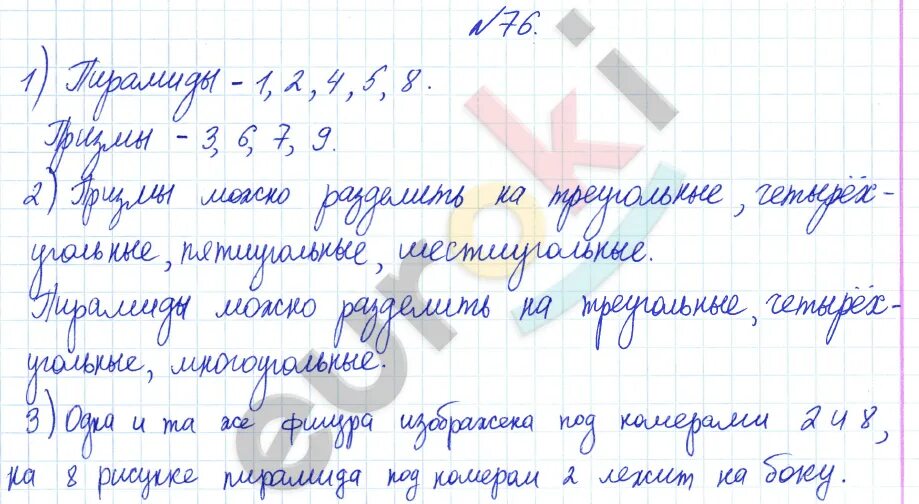 №76.
1) Пирамиды - 1, 2, 4, 5, 8.
Призмы - 3, 6, 7, 9.
2) Призмы можно разделить на треугольные, четырёх-
угольные, пятиугольные, шестиугольные.
Пирамиды можно разделить на треугольные, четырёх-
угольные, многоугольные.
3) Одна и та же фигура изображена под номерами 2 и 8,
на 8 рисунке пирамида под номером 2 лежит на боку.
euroki